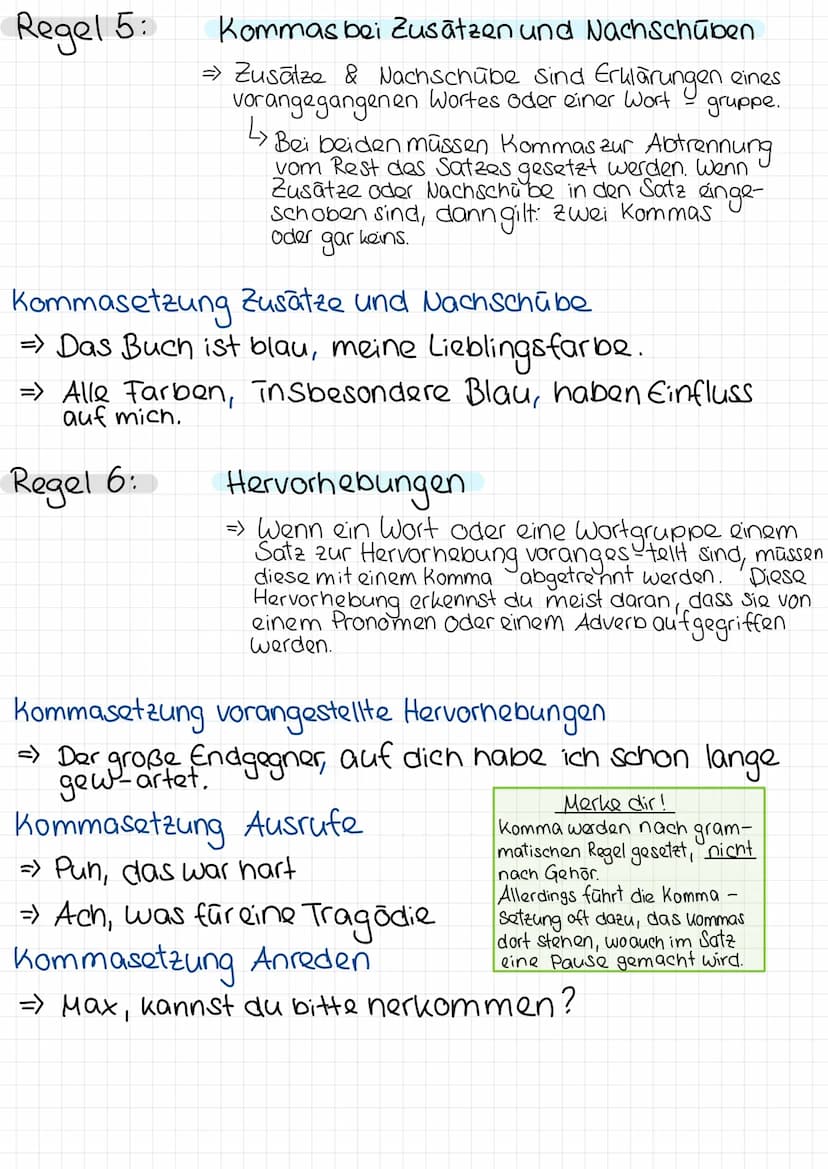 Regel 5: Kommas bei Zusätzen und Nachschüben
⇒ Zusätze & Nachschübe sind Erklärungen eines
vorangegangenen Wortes oder einer Wort-gruppe.
↳ Bei beiden müssen Kommas zur Abtrennung
vom Rest des Satzes gesetzt werden. Wenn
Zusätze oder Nachschübe in den Satz einge-
schoben sind, dann gilt: zwei Kommas
oder gar keins.
Kommasetzung Zusätze und Nachschübe
⇒ Das Buch ist blau, meine Lieblingsfarbe.
⇒ Alle Farben, insbesondere Blau, haben Einfluss
auf mich.
Regel 6: Hervorhebungen
⇒ Wenn ein Wort oder eine Wortgruppe einem
Satz zur Hervorhebung voranges-tellt sind, müssen
diese mit einem Komma abgetrennt werden. Diese
Hervorhebung erkennst du meist daran, dass sie von
einem Pronomen oder einem Adverb aufgegriffen
werden.
Kommasetzung vorangestellte Hervorhebungen
⇒ Der große Endgegner, auf dich habe ich schon lange
gew-artet.
Kommasetzung Ausrufe
⇒ Puh, das war hart
⇒ Ach, was für eine Tragödie
Kommasetzung Anreden
⇒ Max, kannst du bitte herkommen?
Merke dir!
Komma werden nach gram-
matischen Regel gesetzt, nicht
nach Gehör.
Allerdings führt die Komma-
setzung oft dazu, das Kommas
dort stehen, wo auch im Satz
eine Pause gemacht wird.